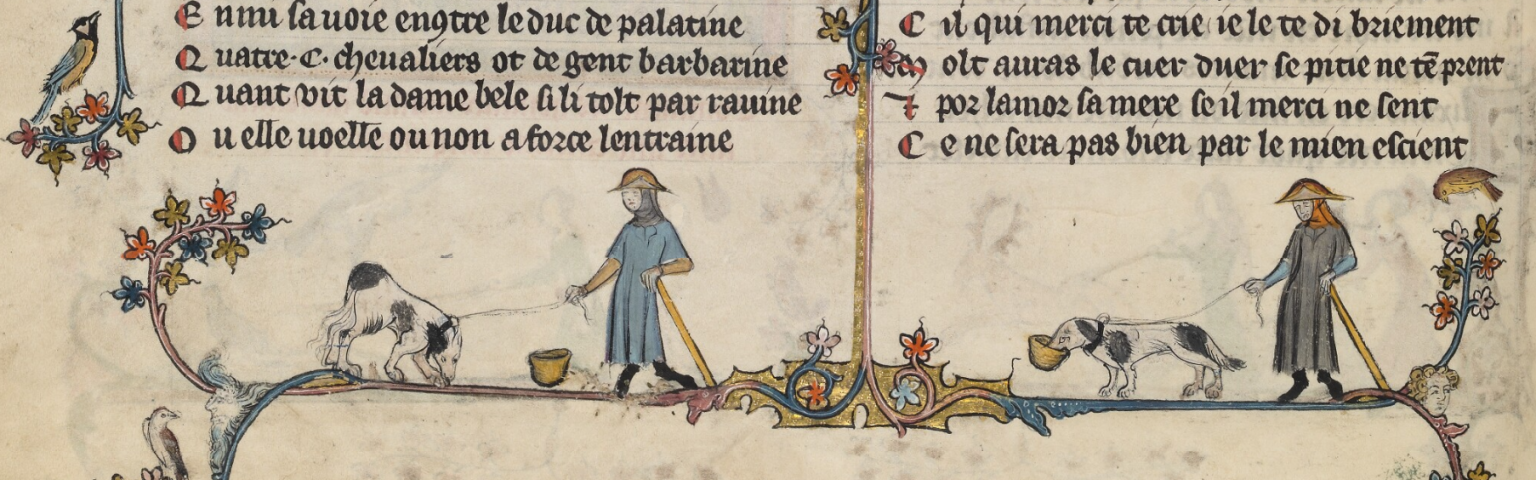 E nmi sa uoie en9tre le duc de palatine
Q uatre·C·cheualiers ot de gent barbarine
Q uant vit la dame bele si li tolt par rauine
O u elle uoelle ou non a force lentraine
C il qui merci te crie ie le te di briement
M olt auras le cuer duer se pitie ne tē prent
⁊ por lamor sa mere se il merci ne sent
C e ne sera pas bien par le mien escient